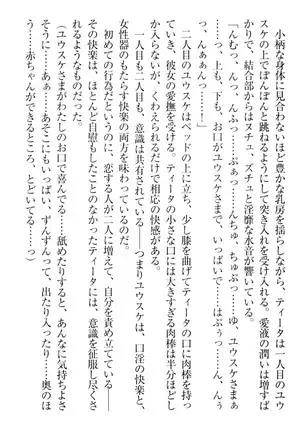 小柄な身体に見合わないほど豊かな乳房を揺らしながら、ティータは一人目のユウ
スケの上でぽんぽんと跳ねるようにして突き入れを受けている。愛液の潤いは増すば
かりで、結合部からはヌチュ、ズチュと淫靡な水音が響いている。
「んむっ、んっ、んふっ……ぷぁっ……んちゅ、ちゅぷ……ゆ、ユウスケさまぁ
……っ、上も、下も、お口がユウスケさまで、いっぱいで……はぷぅっ……ん、んぅ
っ、んぁぁんっ……！」
二人目のユウスケはベッドの上に立ち、少し膝を曲げてティータの口に肉棒を持っ
ていき、彼女の愛撫を受ける。ティータの小さな口には大きすぎる肉棒は半分ほどし
か入らないが、くわえてもらうだけで相応の快感がある。
一人目も二人目も、意識は共有されている――つまりユウスケは、口淫の快楽と、
女性器のもたらす快楽の両方を味わっているのだ。
初めての行為だというのに、恋する人が二人に増えて、自分を責め立てている――
その快楽は、ほとんど自慰もしたことのなかったティータには、意識を征服し尽くさ
れるものだった。
（ユウスケさまがわたしのお口で喜んでる……舐めたりすると、あんなに気持ちよさ
そうに……あぁ……あそこにもいっぱい、ずんずんって、出たり入ったり……奥のほ
う……赤ちゃんができるところ、とどいてる……っ）